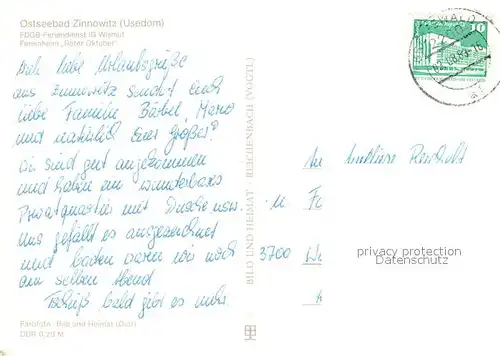 Ostseebad Zinnowitz (Usedom)
FDGB-Feriendienst IG Wismut
Ferienheim „Roter Oktober"
liebe Urlaubsgrüße
aus Zinnowitz sendet Euch
liebe Familie Bärbel, Mario
und natürlich Euer Großer?
Wir sind gut angekommen
und haben ein wunderbares
Privatquartier mit Dusche usw.
Uns gefällt es ausgezeichnet
und baden waren wir noch
am selben Abend
Tschüß bald gibt es mehr
Farbfoto: Bild und Heimat (Dick)
DDR 0,20 M
BILD UND HEIMAT REICHENBACH (VOGTL)
10
3700
privacy protection
ansichtskarten-center.de